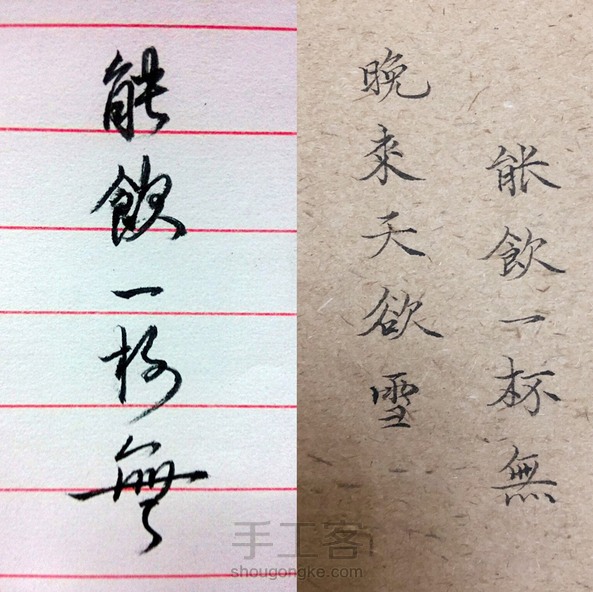 能飲一杯無
晚來天欲雪
能飲一杯無
手工客
shougongke.com